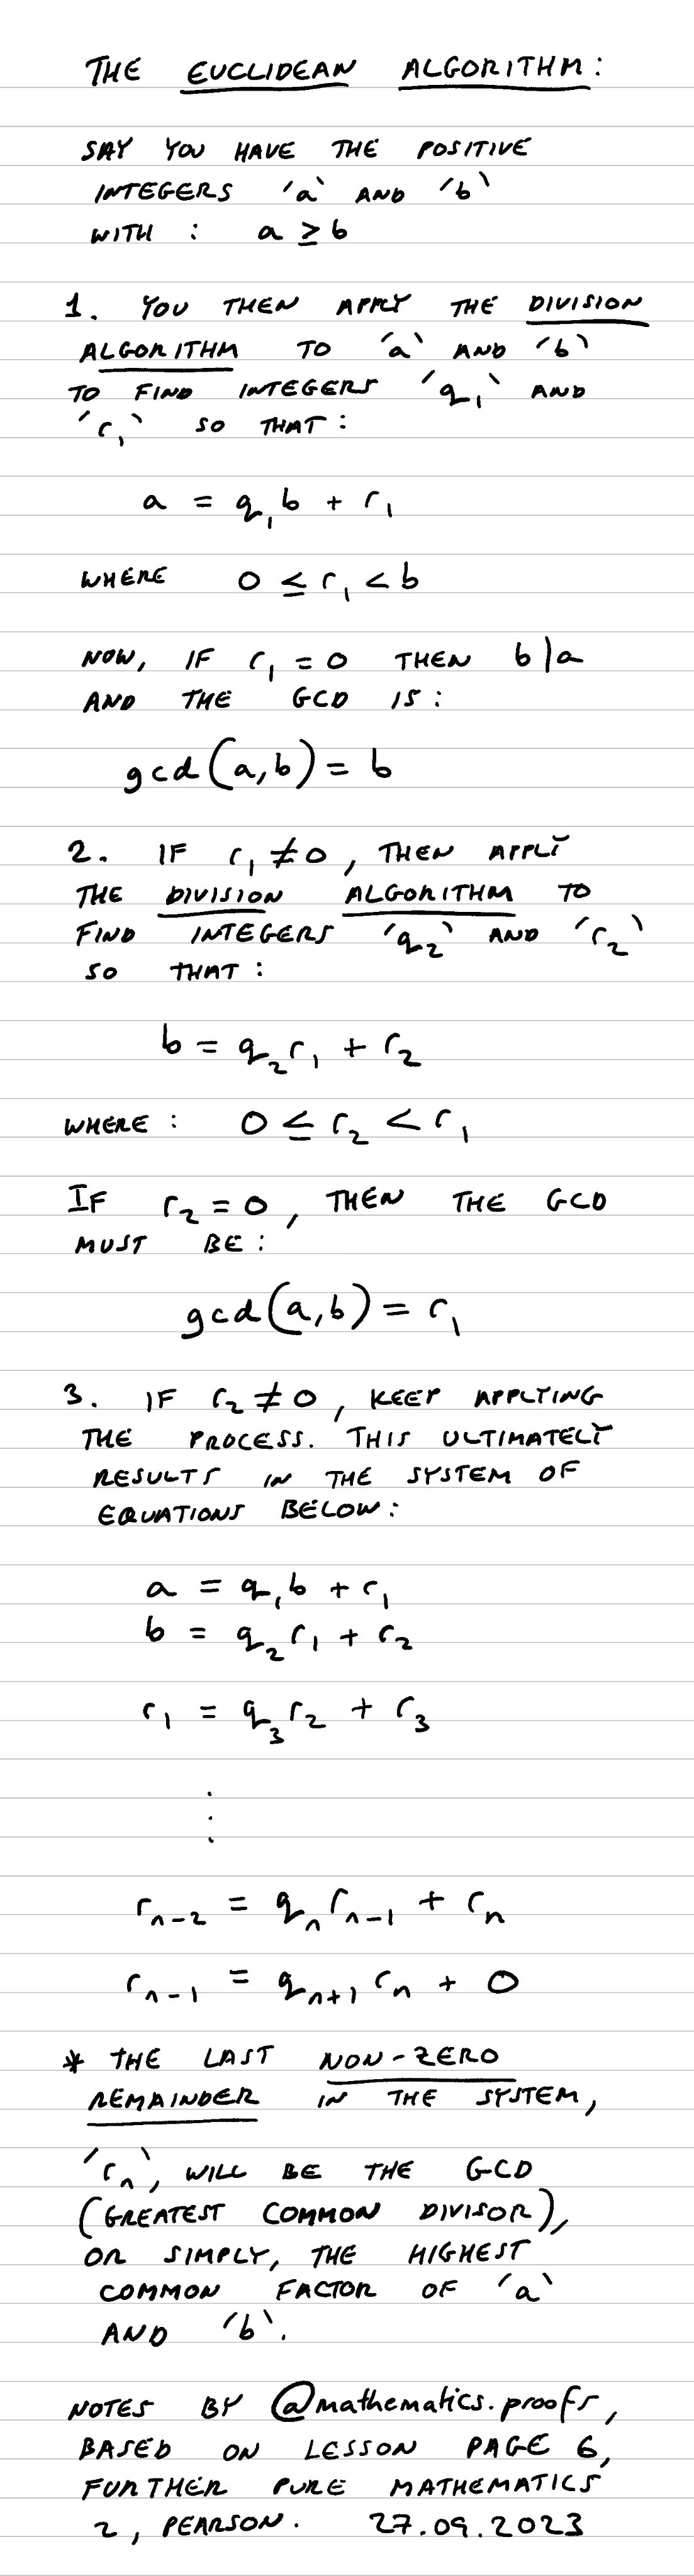 THE EUCLIDEAN ALGORITHM:
SAY YOU HAVE THE POSITIVE
INTEGERS 'a' AND 'b'
WITH : a ≥ b
1. YOU THEN APPLY THE DIVISION
ALGORITHM TO 'a' AND 'b'
TO FIND INTEGERS 'q₁' AND
'r₁' SO THAT:
a = q₁b + r₁
WHERE 0 ≤ r₁ < b
NOW, IF r₁ = 0 THEN b|a
AND THE GCD IS:
gcd(a,b) = b
2. IF r₁ ≠ 0, THEN APPLY
THE DIVISION ALGORITHM TO
FIND INTEGERS 'q₂' AND 'r₂'
SO THAT:
b = q₂r₁ + r₂
WHERE : 0 ≤ r₂ < r₁
IF r₂ = 0, THEN THE GCD
MUST BE:
gcd(a,b) = r₁
3. IF r₂ ≠ 0, KEEP APPLYING
THE PROCESS. THIS ULTIMATELY
RESULTS IN THE SYSTEM OF
EQUATIONS BELOW:
a = q₁b + r₁
b = q₂r₁ + r₂
r₁ = q₃r₂ + r₃
⋮
rₙ₋₂ = qₙrₙ₋₁ + rₙ
rₙ₋₁ = qₙ₊₁rₙ + 0
* THE LAST NON-ZERO
REMAINDER IN THE SYSTEM,
'rₙ', WILL BE THE GCD
(GREATEST COMMON DIVISOR),
OR SIMPLY, THE HIGHEST
COMMON FACTOR OF 'a'
AND 'b'.
NOTES BY @mathematics.proofs,
BASED ON LESSON PAGE 6,
FURTHER PURE MATHEMATICS
2, PEARSON. 27.09.2023